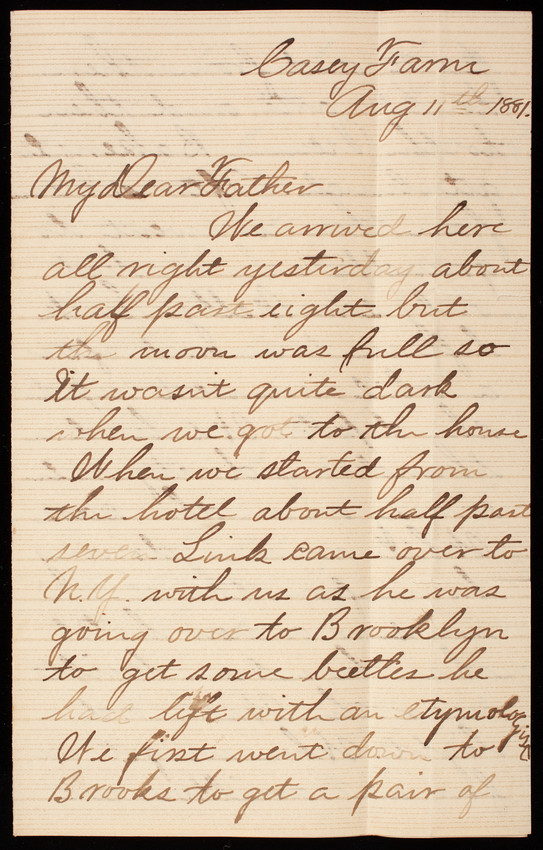 Casey Farm
Aug 11th 1881.
My Dear Father
We arrived here
all right yesterday about
half past eight but
the moon was full so
it wasn't quite dark
when we got to the house
When we started from
the hotel about half past
seven Link came over to
N.Y. with us as he was
going over to Brooklyn
to get some beetles he
had left with an etymologist
We first went down to
Brooks to get a pair of